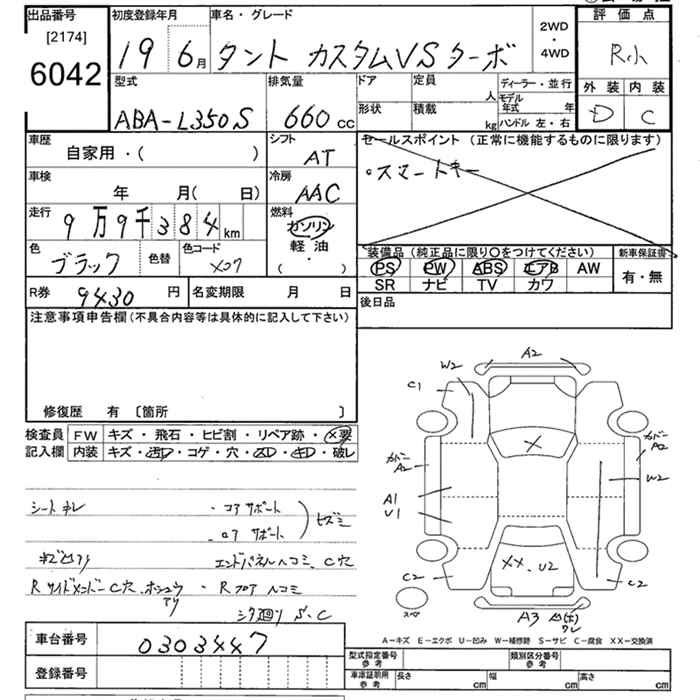 出品番号
[2174]
6042
初度登録年月
19 6月
車名・グレード
タント カスタムVSターボ
2WD
・
4WD
評価点
R小
外装 内装
D C
型式
ABA-L350S
排気量
660 cc
ドア
定員
人
形状
積載
kg
ディーラー・並行
モデル年式 年
ハンドル 左・右
車歴
自家用・( )
シフト
AT
セールスポイント (正常に機能するものに限ります)
・スマートキー
車検
年 月( 日)
冷房
AAC
走行
9万9千384km
燃料
ガソリン
軽油
・
( )
色
ブラック
色替
色コード
X07
装備品 (純正品に限り○をつけてください)
PS PW ABS エアB AW
SR ナビ TV カワ
新車保証書
有・無
R券 C 9430 円
名変期限 月 日
後日品
注意事項申告欄(不具合内容等は具体的に記入して下さい)
修復歴 有 〔箇所 〕
検査員記入欄
FW キズ・飛石・ヒビ割・リペア跡・X要
内装 キズ・汚D・コゲ・穴・凹D・キD・破レ
シートキレ
・コアサポート
・ロアサポート
ヒズミ
キズ凹アリ
エンドパネルヘコミ、C穴
Rサイドメンバー C穴、ホシュウアリ
・Rフロアヘコミ
シタ廻り S、C
車台番号 0303447
登録番号
A2
W2
C1
カバーA2
カバーA2
W2
X
A1
U1
XX、U2
C2
C2
スペア
A3
A-キズ E-エクボ U-凹み W-補修跡 S-サビ C-腐食 XX-交換済
型式指定番号
参考
類別区分番号
参考
車庫証明用
参考
長さ cm
幅 cm
高さ cm